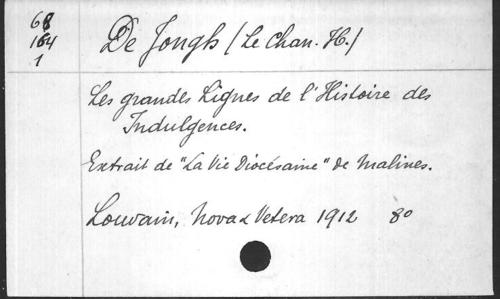 68
164
1
De Jongh (Le Chan. H.)
Les grandes Lignes de l'Histoire des
Indulgences.
Extrait de "La Vie Diocésaine" de Malines.
Louvain, Nova & Vetera 1912 8o